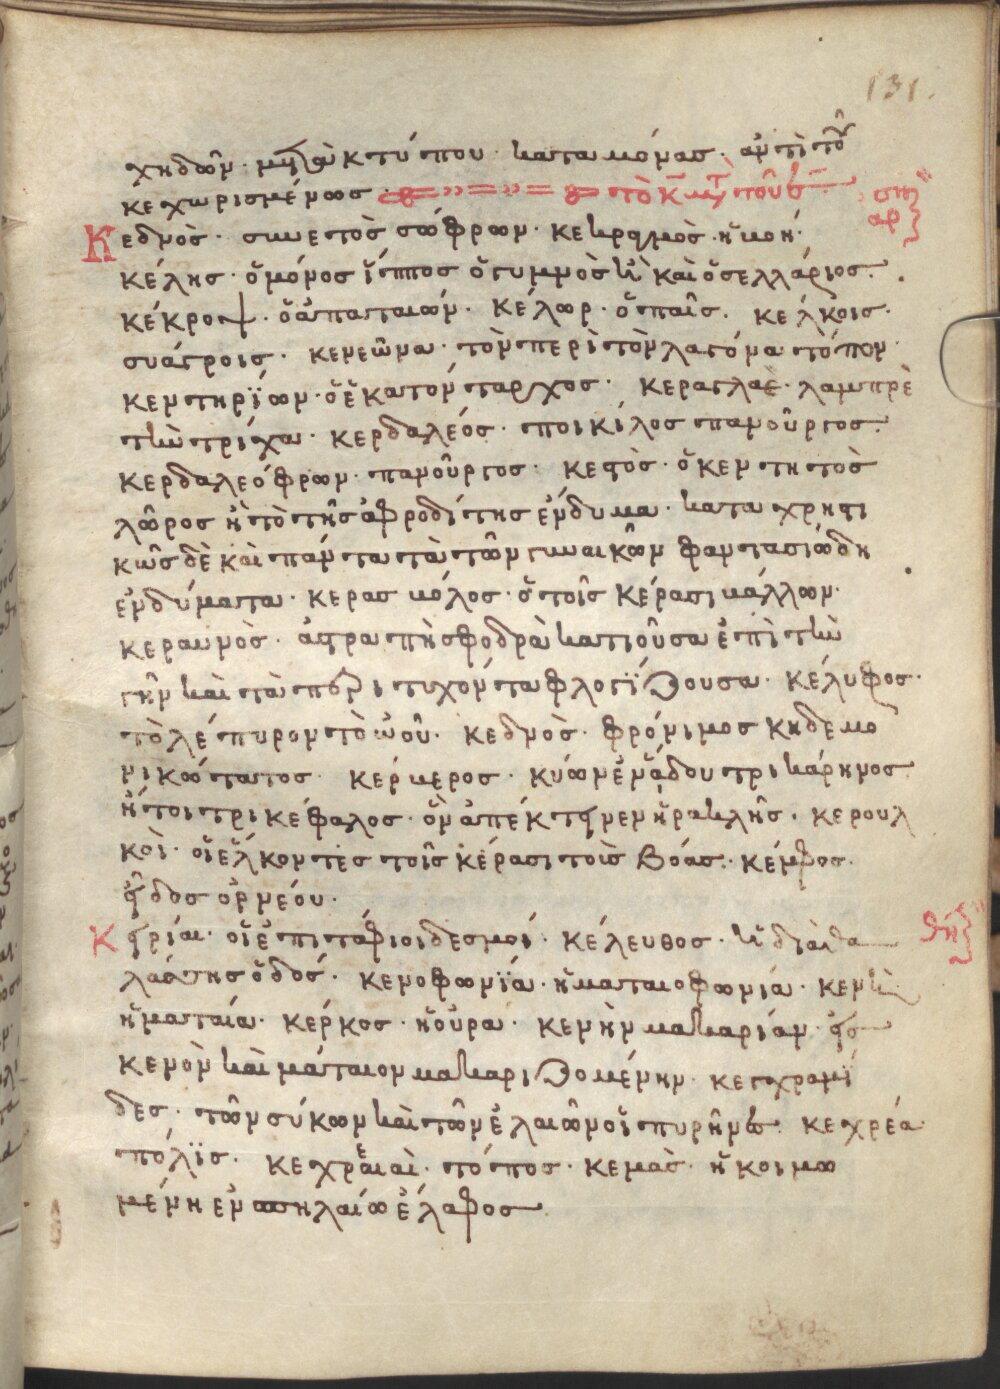 131.
χηδὼν · μῆλα κτύπου · καταμόνας · ἀντὶ τοῦ
κεχωρισμένως · τὸ κ μετὰ τοῦ ε
Κεδνὸς · συνετὸς σώφρων · κεκραγμὸς · ἡ βοή ·
κέλης · ὁ μόνος ἵππος ὁ γυμνὸς ἢ καὶ ὁ σελλάριος ·
κέκροψ · ὁ ἀπατεών · κέλωρ · ὁ παῖς · κέλκοις ·
συάγροις · κενεῶνα · τὸν περὶ τὸν λαγόνα τόπον ·
κεντηρίων · ὁ ἑκατόνταρχος · κεραγλαὲ · λαμπρὲ
τὴν τρίχα · κερδαλέος · ποικίλος πανοῦργος ·
κερδαλεόφρων · πανοῦργος · κεστὸς · ὁ κεντητὸς
λῶρος ἢ τὸ τῆς ἀφροδίτης ἔνδυμα · καταχρηστι
κῶς δὲ καὶ πάντα τὰ τῶν γυναικῶν φαντασιώδη
ἐνδύματα · κερασβόλος · ὁ τοῖς κέρασι βάλλων ·
κεραυνὸς · ἀστραπὴ σφοδρὰ κατιοῦσα ἐπὶ τὴν
γῆν καὶ τὰ παρατυχόντα φλογίζουσα · κέλυφος ·
τὸ λέπυρον τὸ ὠοῦ · κεδνὸς · φρόνιμος κηδεμο
νικώτατος · κέρβερος · κύων ἐν ἅδου τρικάρηνος
ἤτοι τρικέφαλος · ὃν ἀπέκτεινεν ἡρακλῆς · κερουλ
κοὶ · οἱ ἕλκοντες τοῖς κέρασι τοὺς βόας · κέμφος ·
εἶδος ὀρνέου ·
Κειρίαι · οἱ ἐπιτάφιοι δεσμοί · κέλευθος · ἡ διὰ θα
λάσσης ὁδός · κενοφωνία · ἡ ματαιοφωνία · κενὴ
ἡ ματαία · κέρκος · ἡ οὐρα · κενὴν μακαρίαν · εἰς
κενὸν καὶ μάταιον μακαριζομένην · κεγχραμί
δες · τῶν σύκων καὶ τῶν ἐλαιῶν οἱ πυρῆνες · κεχρέα
πόλις · κεχρεαὶ · τόπος · κεμὰς · ἡ κοιμω
μένη ἐν σπηλαίω ἔλαφος